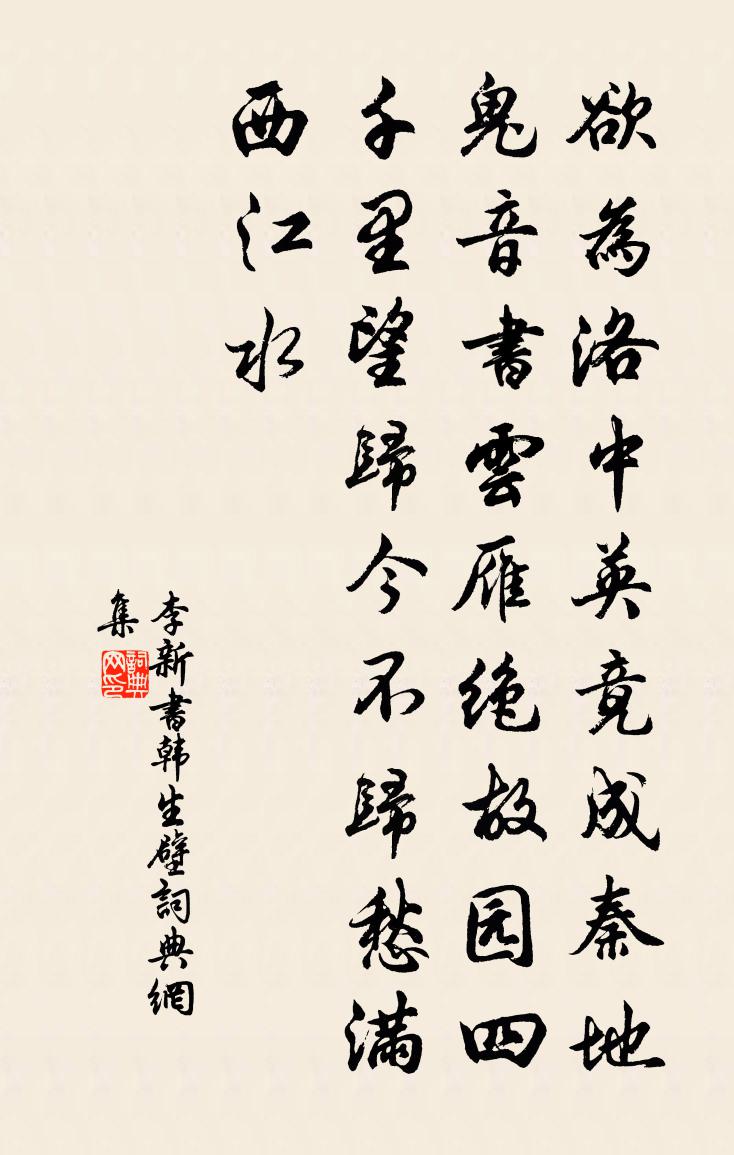 欲為洛中英竟成秦地
鬼音書雲雁绝故园四
千里望歸今不歸愁滿
西江水
李新書韩生壁詞典網
集
詞典
网印